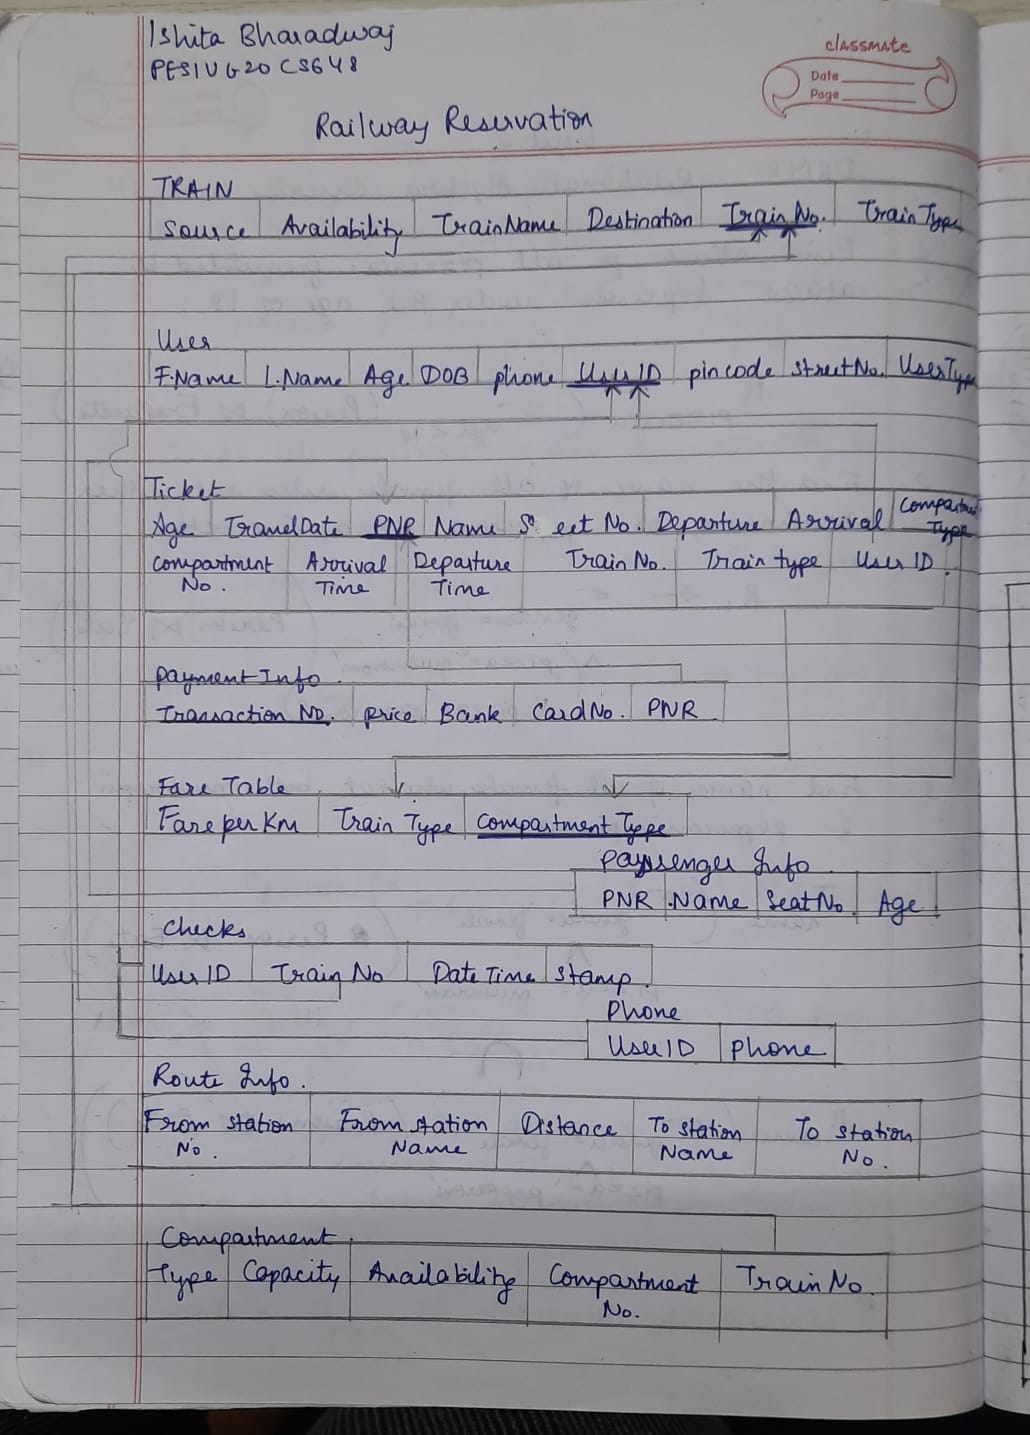 Ishita Bharadwaj
PES1UG20CS648
classmate
Date
Page
Railway Reservation
TRAIN
Source Availability TrainName Destination Train No. Train Type
User
F.Name L.Name Age DOB phone User ID pincode Street No. User Type
Ticket
Age Travel Date PNR Name Seat No. Departure Arrival Compartment Type
Compartment No. Arrival Time Departure Time Train No. Train type User ID
Payment Info
Transaction NO. price Bank Card No. PNR
Fare Table
Fare per Km Train Type Compartment Type
Passenger Info
PNR Name Seat No. Age
Checks
User ID Train No Date Time Stamp
Phone
User ID phone
Route Info.
From station No. From station Name Distance To station Name To station No.
Compartment
Type Capacity Availability Compartment No. Train No.